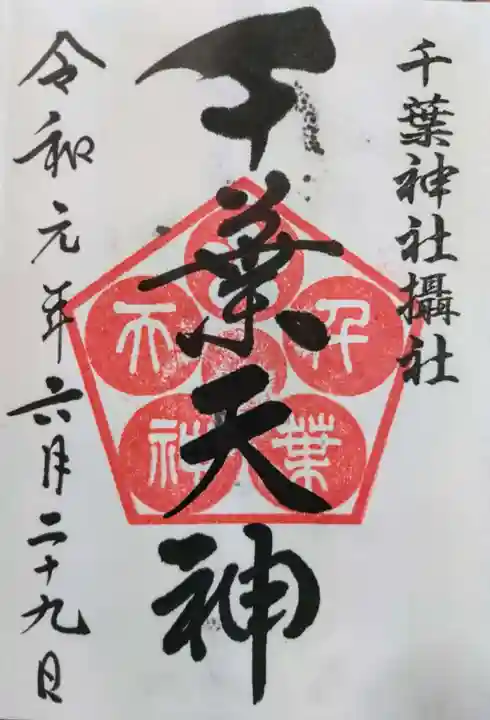 千葉神社攝社
千葉天神
千葉
天神
令和元年六月二十九日